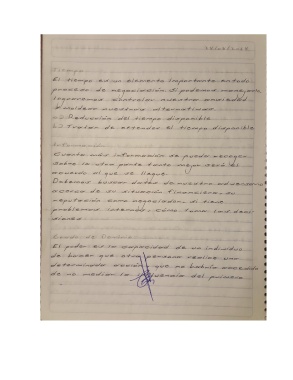 Tiempo
El tiempo es un elemento importante en todo
proceso de negociación. Si podemos manejarlo
lograremos controlar nuestra ansiedad.
alternativas:
Reducción del tiempo disponible
Tratar de extender el tiempo disponible
Información
Cuanta más información se pueda recoger
sobre la otra parte tanto mejor será el
acuerdo al que se llegue.
Debemos buscar datos de nuestro adversario
acerca de su situación financiera, su
reputación como negociador, si tiene
problemas internos, cómo toma las deci
siones
El poder es la capacidad de un individuo
de hacer que otra persona realice una
determinada acción que no habría
de no mediar la influencia del primero